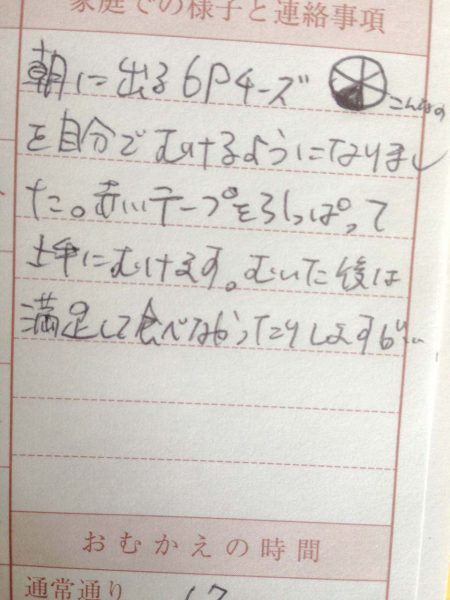 家庭での様子と連絡事項
朝に出る6Pチーズ こんなの
を自分でむけるようになりまし
た。赤いテープを引っぱって
上手にむけます。むいた後は
満足して食べなかったりしますが…
おむかえの時間
通常通り 17